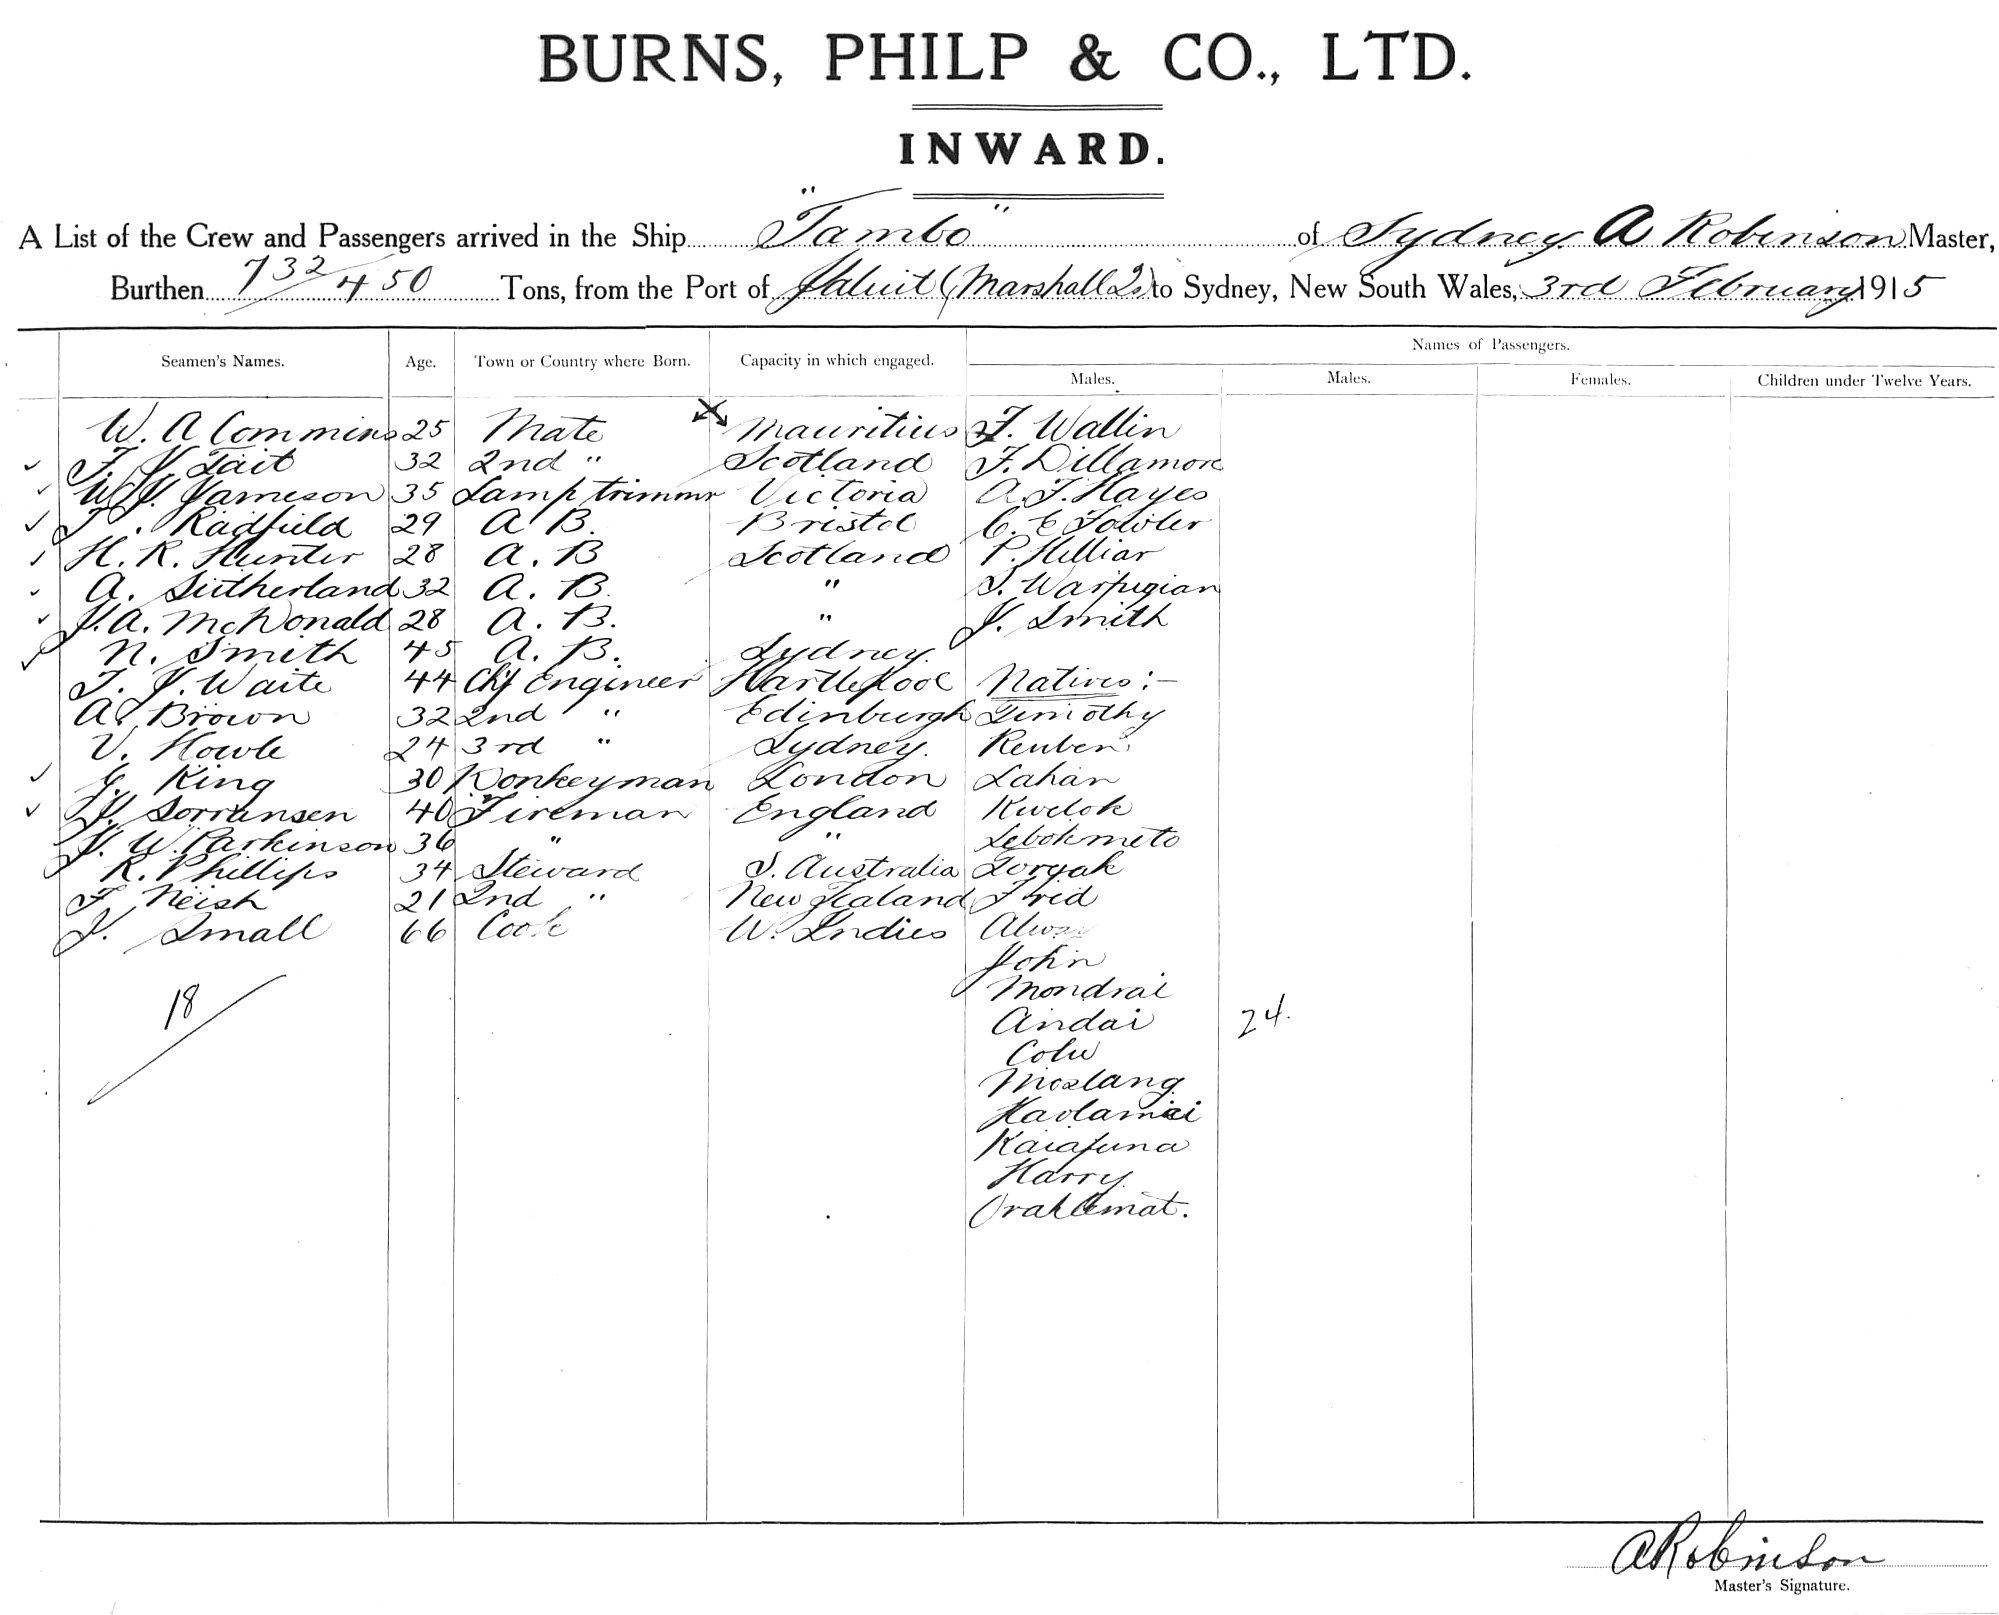 BURNS, PHILP & CO., LTD.
INWARD.
A List of the Crew and Passengers arrived in the Ship "Tambo" of Sydney A Robinson Master,
Burthen 732/450 Tons, from the Port of Jaluit (Marshall Is) to Sydney, New South Wales, 3rd February 1915
Names of Passengers.
Seamen's Names. Age. Town or Country where Born. Capacity in which engaged. Males. Males. Females. Children under Twelve Years.
W. A Commins 25 Mate Mauritius F. Wallin
✓ F. J. Tait 32 2nd " Scotland F. Dillamore
✓ W. J. Jameson 35 Lamp trimmr Victoria A. F. Hayes
✓ Radfield 29 A B. Bristol C. E Fowler
✓ H. R. Hunter 28 A. B Scotland P. Hilliar
✓ A. Sutherland 32 A. B. " S. Warpigian
✓ J. A. McDonald 28 A. B. " J. Smith
✓ N. Smith 45 A. B. Sydney.
T. J. Waite 44 Chf Engineer Hartlepool Natives:—
A. Brown 32 2nd " Edinburgh Timothy
V. Howle 24 3rd " Sydney. Reuben
✓ G. King 30 Donkeyman London Lahan
✓ J. Sorransen 40 Fireman England Kwelok
J. W. Parkinson 36 " " Lebokmeto
R. Phillips 34 Steward S. Australia Loryak
F Neish 21 2nd " New Zealand Frid
J. Small 66 Cook W. Indies
John
18 Mondrai
Andai 24.
Colu
Moslang
Kaiafuna
Harry.
A Robinson
Master's Signature.